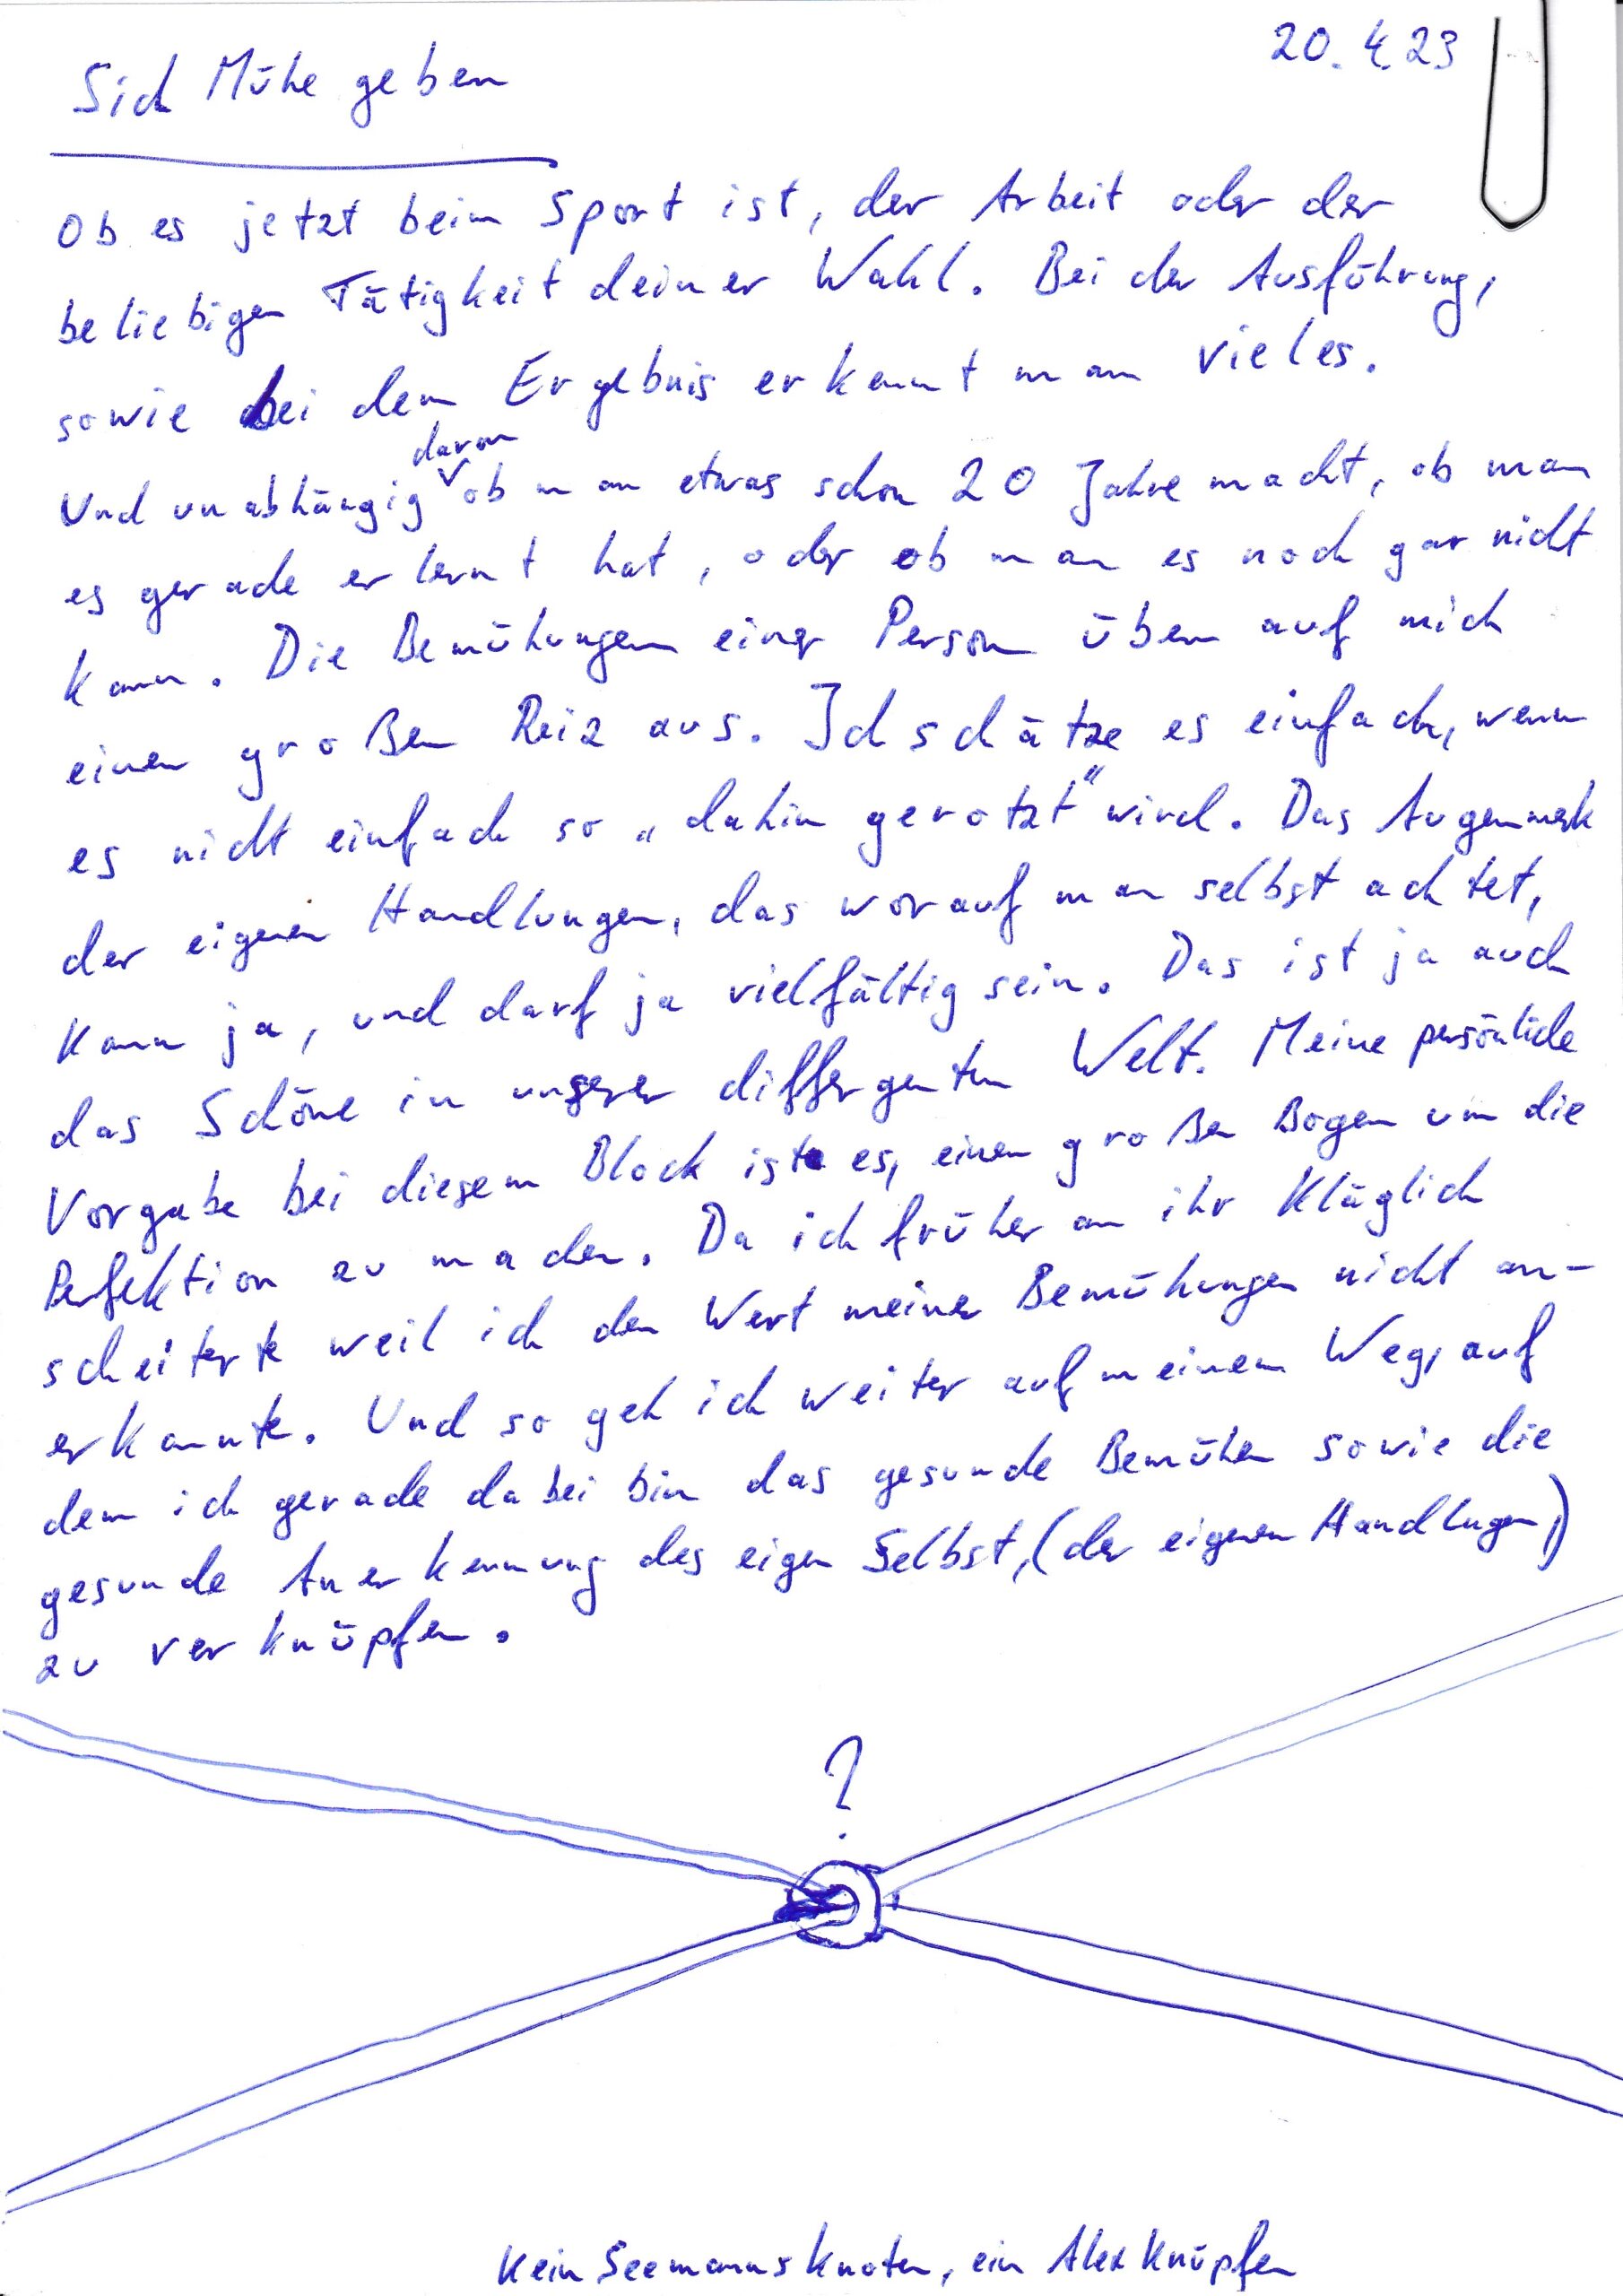 20.4.23
Sich Mühe geben
Ob es jetzt beim Sport ist, der Arbeit oder der
beliebigen Tätigkeit deiner Wahl. Bei der Ausführung,
sowie bei dem Ergebnis erkennt man vieles.
davon
Und unabhängig ob man etwas schon 20 Jahre macht, ob man
es gerade erlernt hat, oder ob man es noch gar nicht
kann. Die Bemühungen einer Person üben auf mich
einen großen Reiz aus. Ich schätze es einfach, wenn
es nicht einfach so „dahin gerotzt" wird. Das Augenmerk
der eigenen Handlungen, das worauf man selbst achtet,
kann ja, und darf ja vielfältig sein. Das ist ja auch
das Schöne in unserer differgenten Welt. Meine persönliche
Vorgabe bei diesem Block ist es, einen großen Bogen um die
Perfektion zu machen. Da ich früher an ihr kläglich
scheiterte weil ich den Wert meiner Bemühungen nicht an-
erkannte. Und so geh ich weiter auf meinem Weg, auf
dem ich gerade dabei bin das gesunde Bemühen sowie die
gesunde Anerkennung des eigen Selbst, (der eigenen Handlugen,)
zu verknüpfen.
?
Kein Seemannsknoten, ein Alex Knüpfen